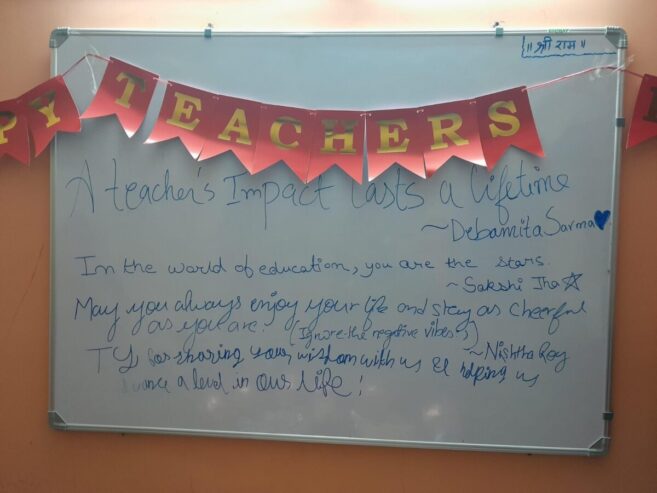 ॥ श्री राम ॥
PY TEACHERS
A teacher's Impact lasts a lifetime
~Debamita Sarma
In the world of education, you are the stars.
~Sakshi Jha
May you always enjoy your life and stay as cheerful
as you are. (Ignore the negative vibes)
~Nishtha Roy
TY for sharing your wisdom with us & helping us
a level in our life!